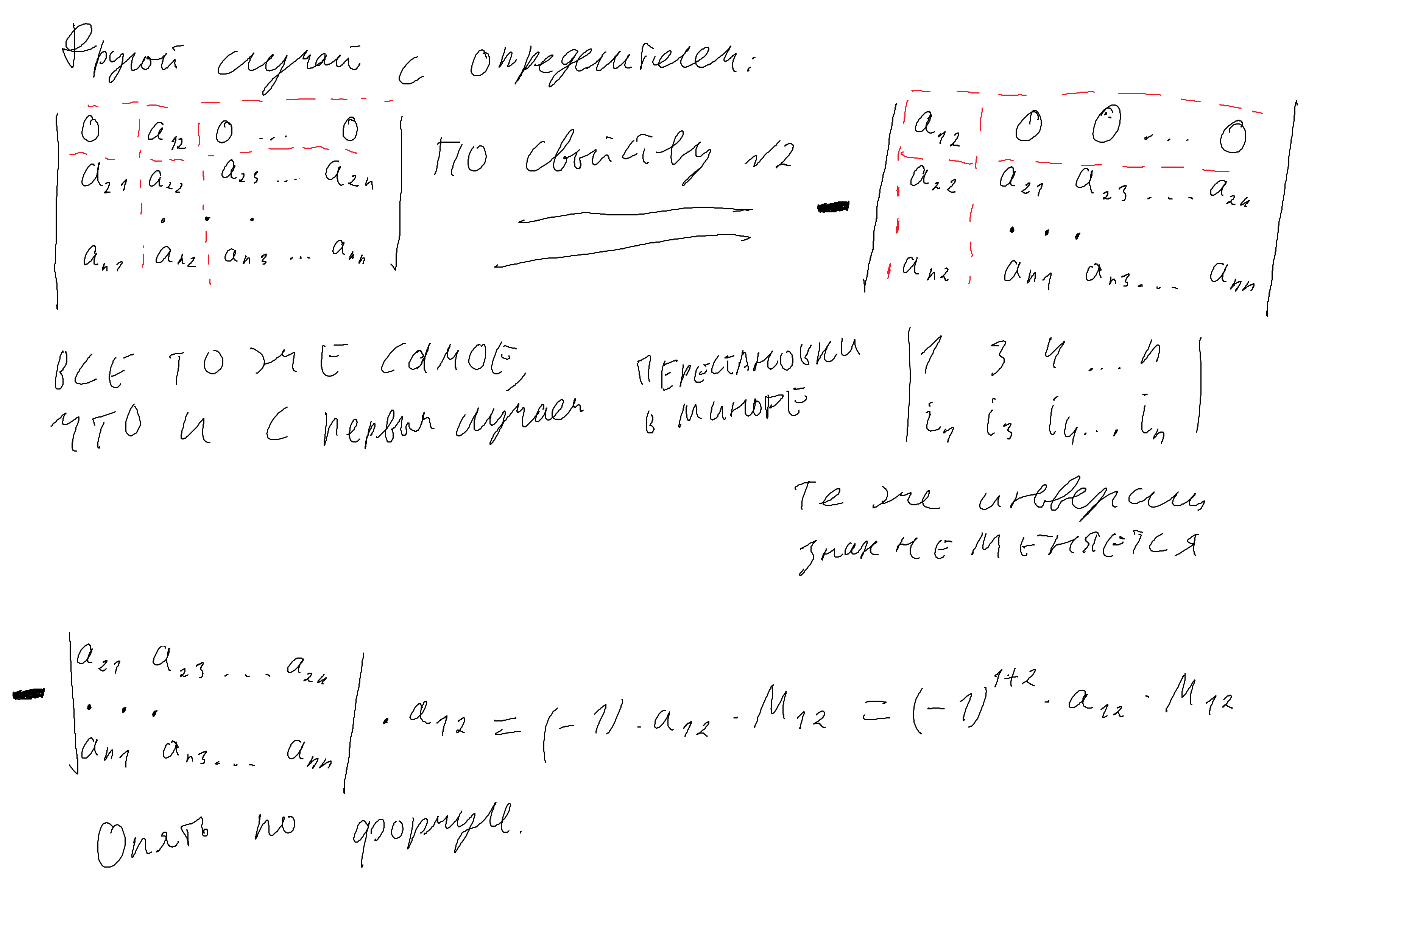 Другой случай с определителем:
| 0 a₁₂ 0 ... 0 |
| a₂₁ a₂₂ a₂₃ ... a₂ₙ |
| . . . |
| aₙ₁ aₙ₂ aₙ₃ ... aₙₙ |
по свойству №2
=
- | a₁₂ 0 0 ... 0 |
| a₂₂ a₂₁ a₂₃ ... a₂ₙ |
| . . . |
| aₙ₂ aₙ₁ aₙ₃ ... aₙₙ |
ВСЕ ТО ЖЕ САМОЕ,
ЧТО И С первым случаем
ПЕРЕСТАНОВКИ
В МИНОРЕ
| 1 3 4 ... n |
| i₁ i₃ i₄ ... iₙ |
Те же инверсии
знак НЕ МЕНЯЕТСЯ
- | a₂₁ a₂₃ ... a₂ₙ |
| . . . |
| aₙ₁ aₙ₃ ... aₙₙ |
· a₁₂ = (-1) · a₁₂ · M₁₂ = (-1)¹⁺² · a₁₂ · M₁₂
Опять по формуле.